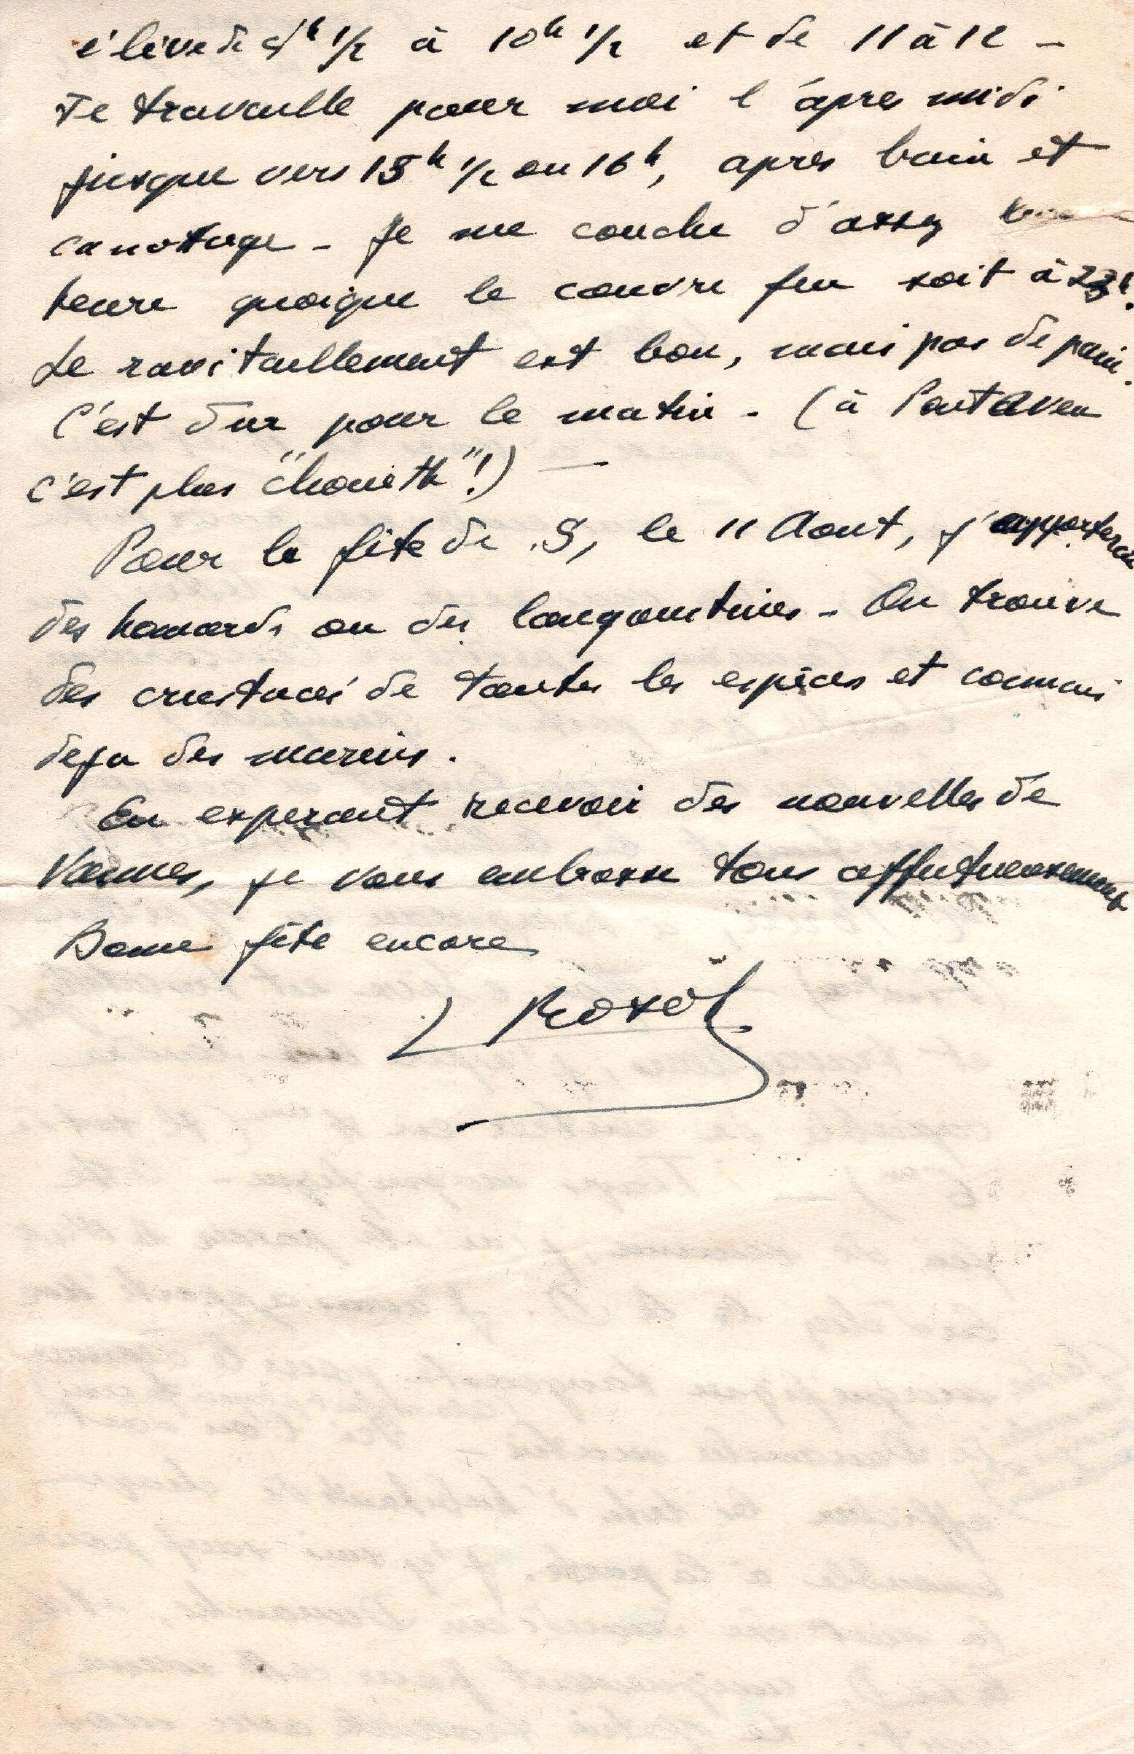 élève de 9h 1/2 à 10h 1/2 et de 11 à 12 -
Je travaille pour moi l'après midi
jusque vers 15h 1/2 ou 16h, après bain et
canotage - Je me couche d'assez
heure quoique le couvre feu soit à 23h.
Le ravitaillement est bon, mais pas de pain.
C'est dur pour le matin - (à Pont Aven
c'est plus "chouette"!) -
Pour la fête de S, le 11 Aout, j'apporterai
des homards ou des langoustines - On trouve
des crustacés de toutes les espèces et connais
deja des marins.
En esperant recevoir des nouvelles de
Vannes, je vous embrasse tous affectueusement
Bonne fête encore